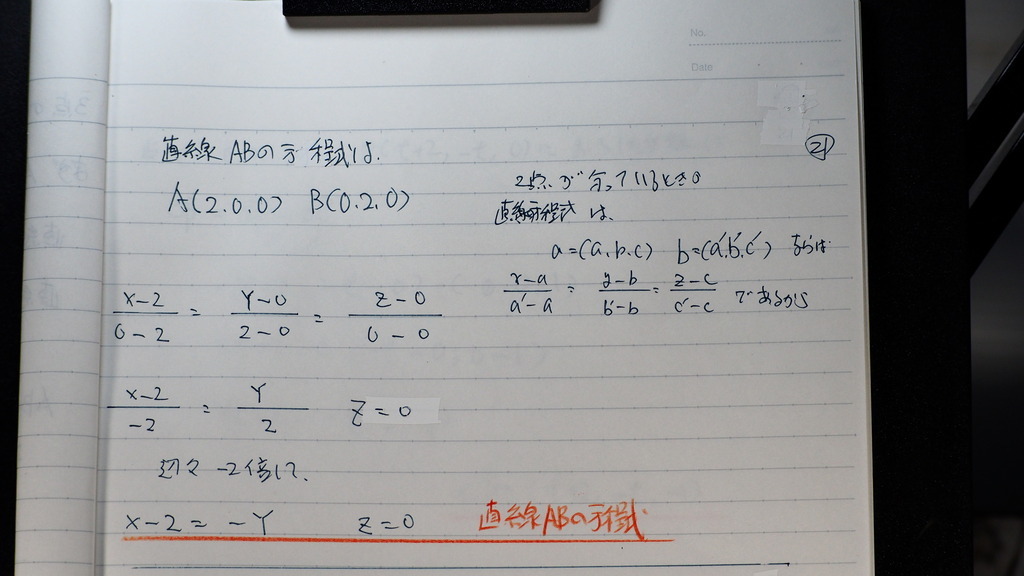 No.
Date
㉑
直線ABの方程式は.
A(2.0.0) B(0.2.0)
2点が分っているときの
直線方程式は、
a=(a,b,c) b=(a',b',c') ならば
x-a/a'-a = y-b/b'-b = z-c/c'-c であるから
x-2/0-2 = Y-0/2-0 = Z-0/0-0
x-2/-2 = Y/2 Z=0
辺々 -2倍して、
x-2 = -Y z=0 直線ABの方程式